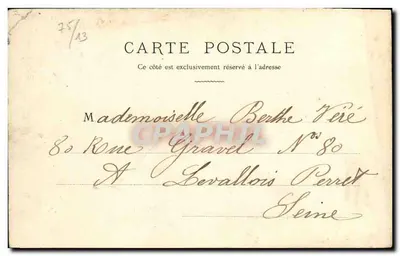 75/13
CARTE POSTALE
Ce côté est exclusivement réservé à l'adresse
Mademoiselle Berthe Véré
80 Rue Gravel Nos 80
A Levallois Perret
Seine